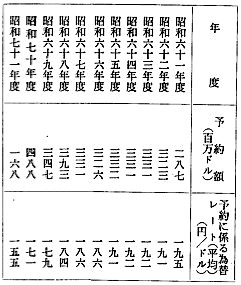 年度 予約額(百万ドル) 予約に係る為替レート(平均)(円/ドル)
昭和六十一年度 二八七 一九五
昭和六十二年度 一九一
昭和六十三年度 一九一
昭和六十四年度 一九一
昭和六十五年度 一九一
昭和六十六年度 三二六 一八六
昭和六十七年度 一八六
昭和六十八年度 三九三 一八四
昭和六十九年度 三四七 一七九
昭和七十年度 四八八 一七一
昭和七十一年度 一六八 一五五